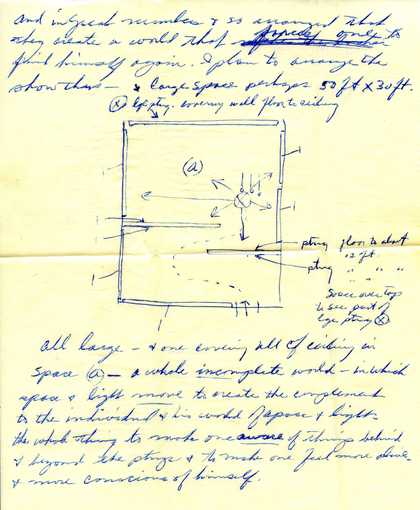 and in great numbers & so arranged that
they create a world that
find himself again. I plan to arrange the
show thus — a large space perhaps 50 ft X 30 ft.
(X) lge ptng. covering wall floor to ceiling
(a)
ptng floor to about
12 ft.
ptng " " " "
Space over top
to see part of
lge ptng (X)
all large — & one covering all of ceiling in
space (a) — a whole incomplete world — in which
space & light move to create the complement
to the individual & his world of space & light —
the whole thing to make one aware of things behind
& beyond the ptngs & to make one feel more alone
& more conscious of himself.